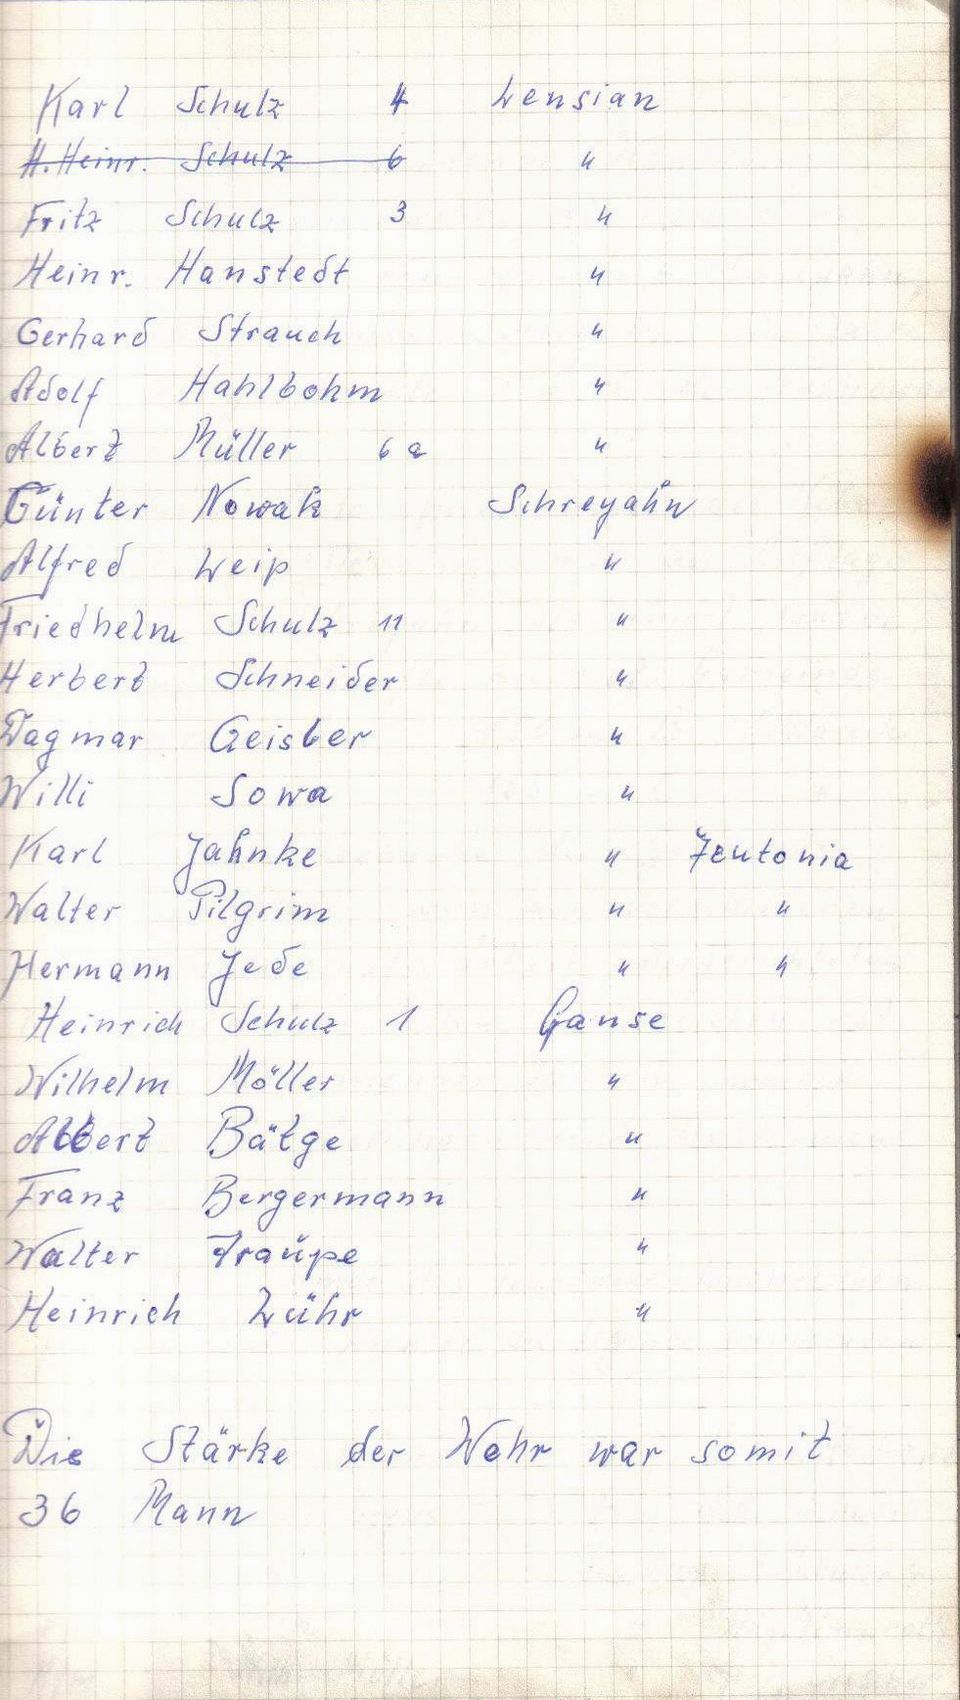 Karl Schulz 4 Lensian
H. Heinr. Schulz 6 "
Fritz Schulz 3 "
Heinr. Hanstedt "
Gerhard Strauch "
Adolf Hahlbohm "
Albert Müller 6a "
Günter Nowak Schreyahn
Alfred Weiß "
Friedhelm Schulz 11 "
Herbert Schneider "
Dagmar Geisber "
Willi Sowa "
Karl Jahnke " Teutonia
Walter Pilgrim " "
Hermann Jede " "
Heinrich Schulz 1 Ganse
Wilhelm Möller "
Albert Bätge "
Franz Bergermann "
Walter Traupe "
Heinrich Lühr "
Die Stärke der Wehr war somit
36 Mann